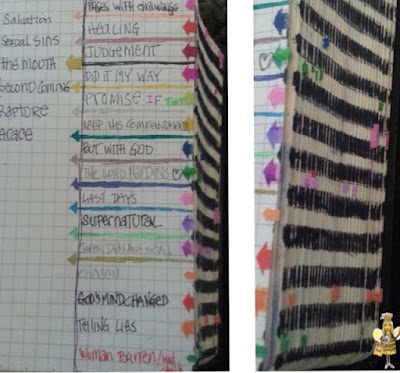 Salvation
Sexual Sins
the mouth
Second Coming
Rapture
Grace
PAGES WITH DRAWINGS
HEALING
JUDGEMENT
DID IT MY WAY
PROMISE IF THEN
KEEP HIS COMMANDMENTS
BUT WITH GOD
THE LORD HARDENS
LAST DAYS
SUPERNATURAL
chosen
GOD'S MIND CHANGED
TELLING LIES
Woman Barren/